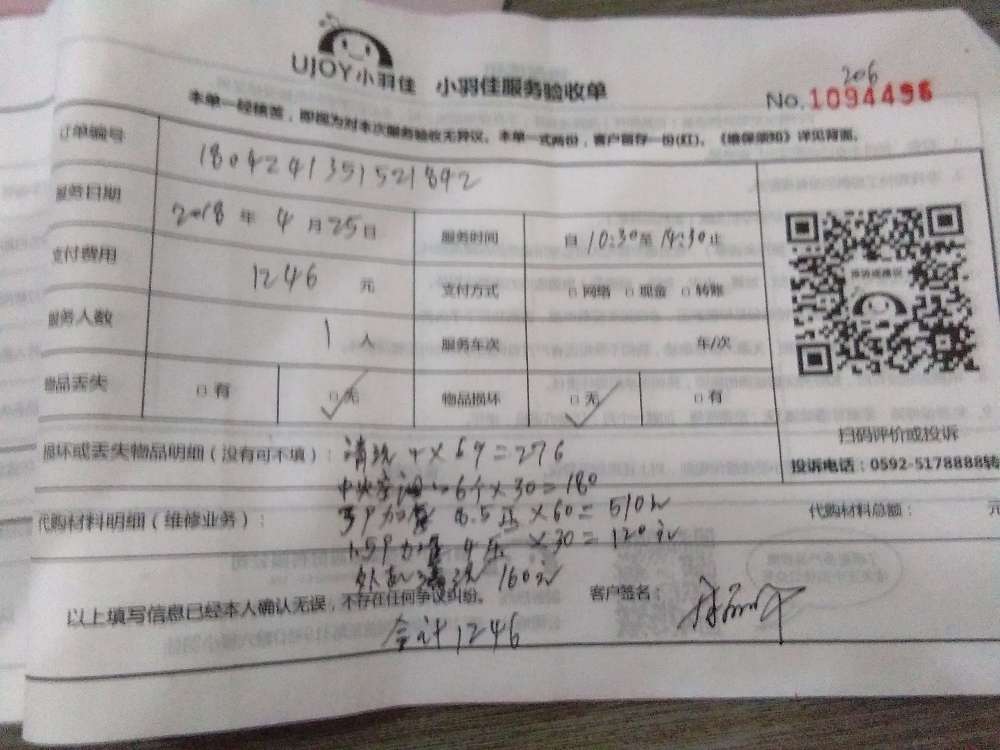 UJOY小羽佳 小羽佳服务验收单
206
No. 1094496
本单一经填签，即视为对本次服务验收无异议。本单一式两份，客户留存一份(红)。《维保须知》详见背面。
订单编号 1804241351521892
服务日期 2018 年 4 月 25 日 服务时间 自 10:30 至 14:30 止
支付费用 1246 元 支付方式 □ 网络 □ 现金 □ 转账
服务人数 1 人 服务车次 车/次
物品丢失 □ 有 □ 无 物品损坏 □ 无 □ 有
扫码评价或投诉
投诉电话：0592-5178888转
损坏或丢失物品明细（没有可不填）： 清洗 4×69=276
中央空调 6个×30=180
代购材料明细（维修业务）： 代购材料总额： 元
8.5压×60=510元
1.5P加 4压 ×30=120元
外机清洗 160元
以上填写信息已经本人确认无误，不存在任何争议纠纷。 客户签名：
合计1246